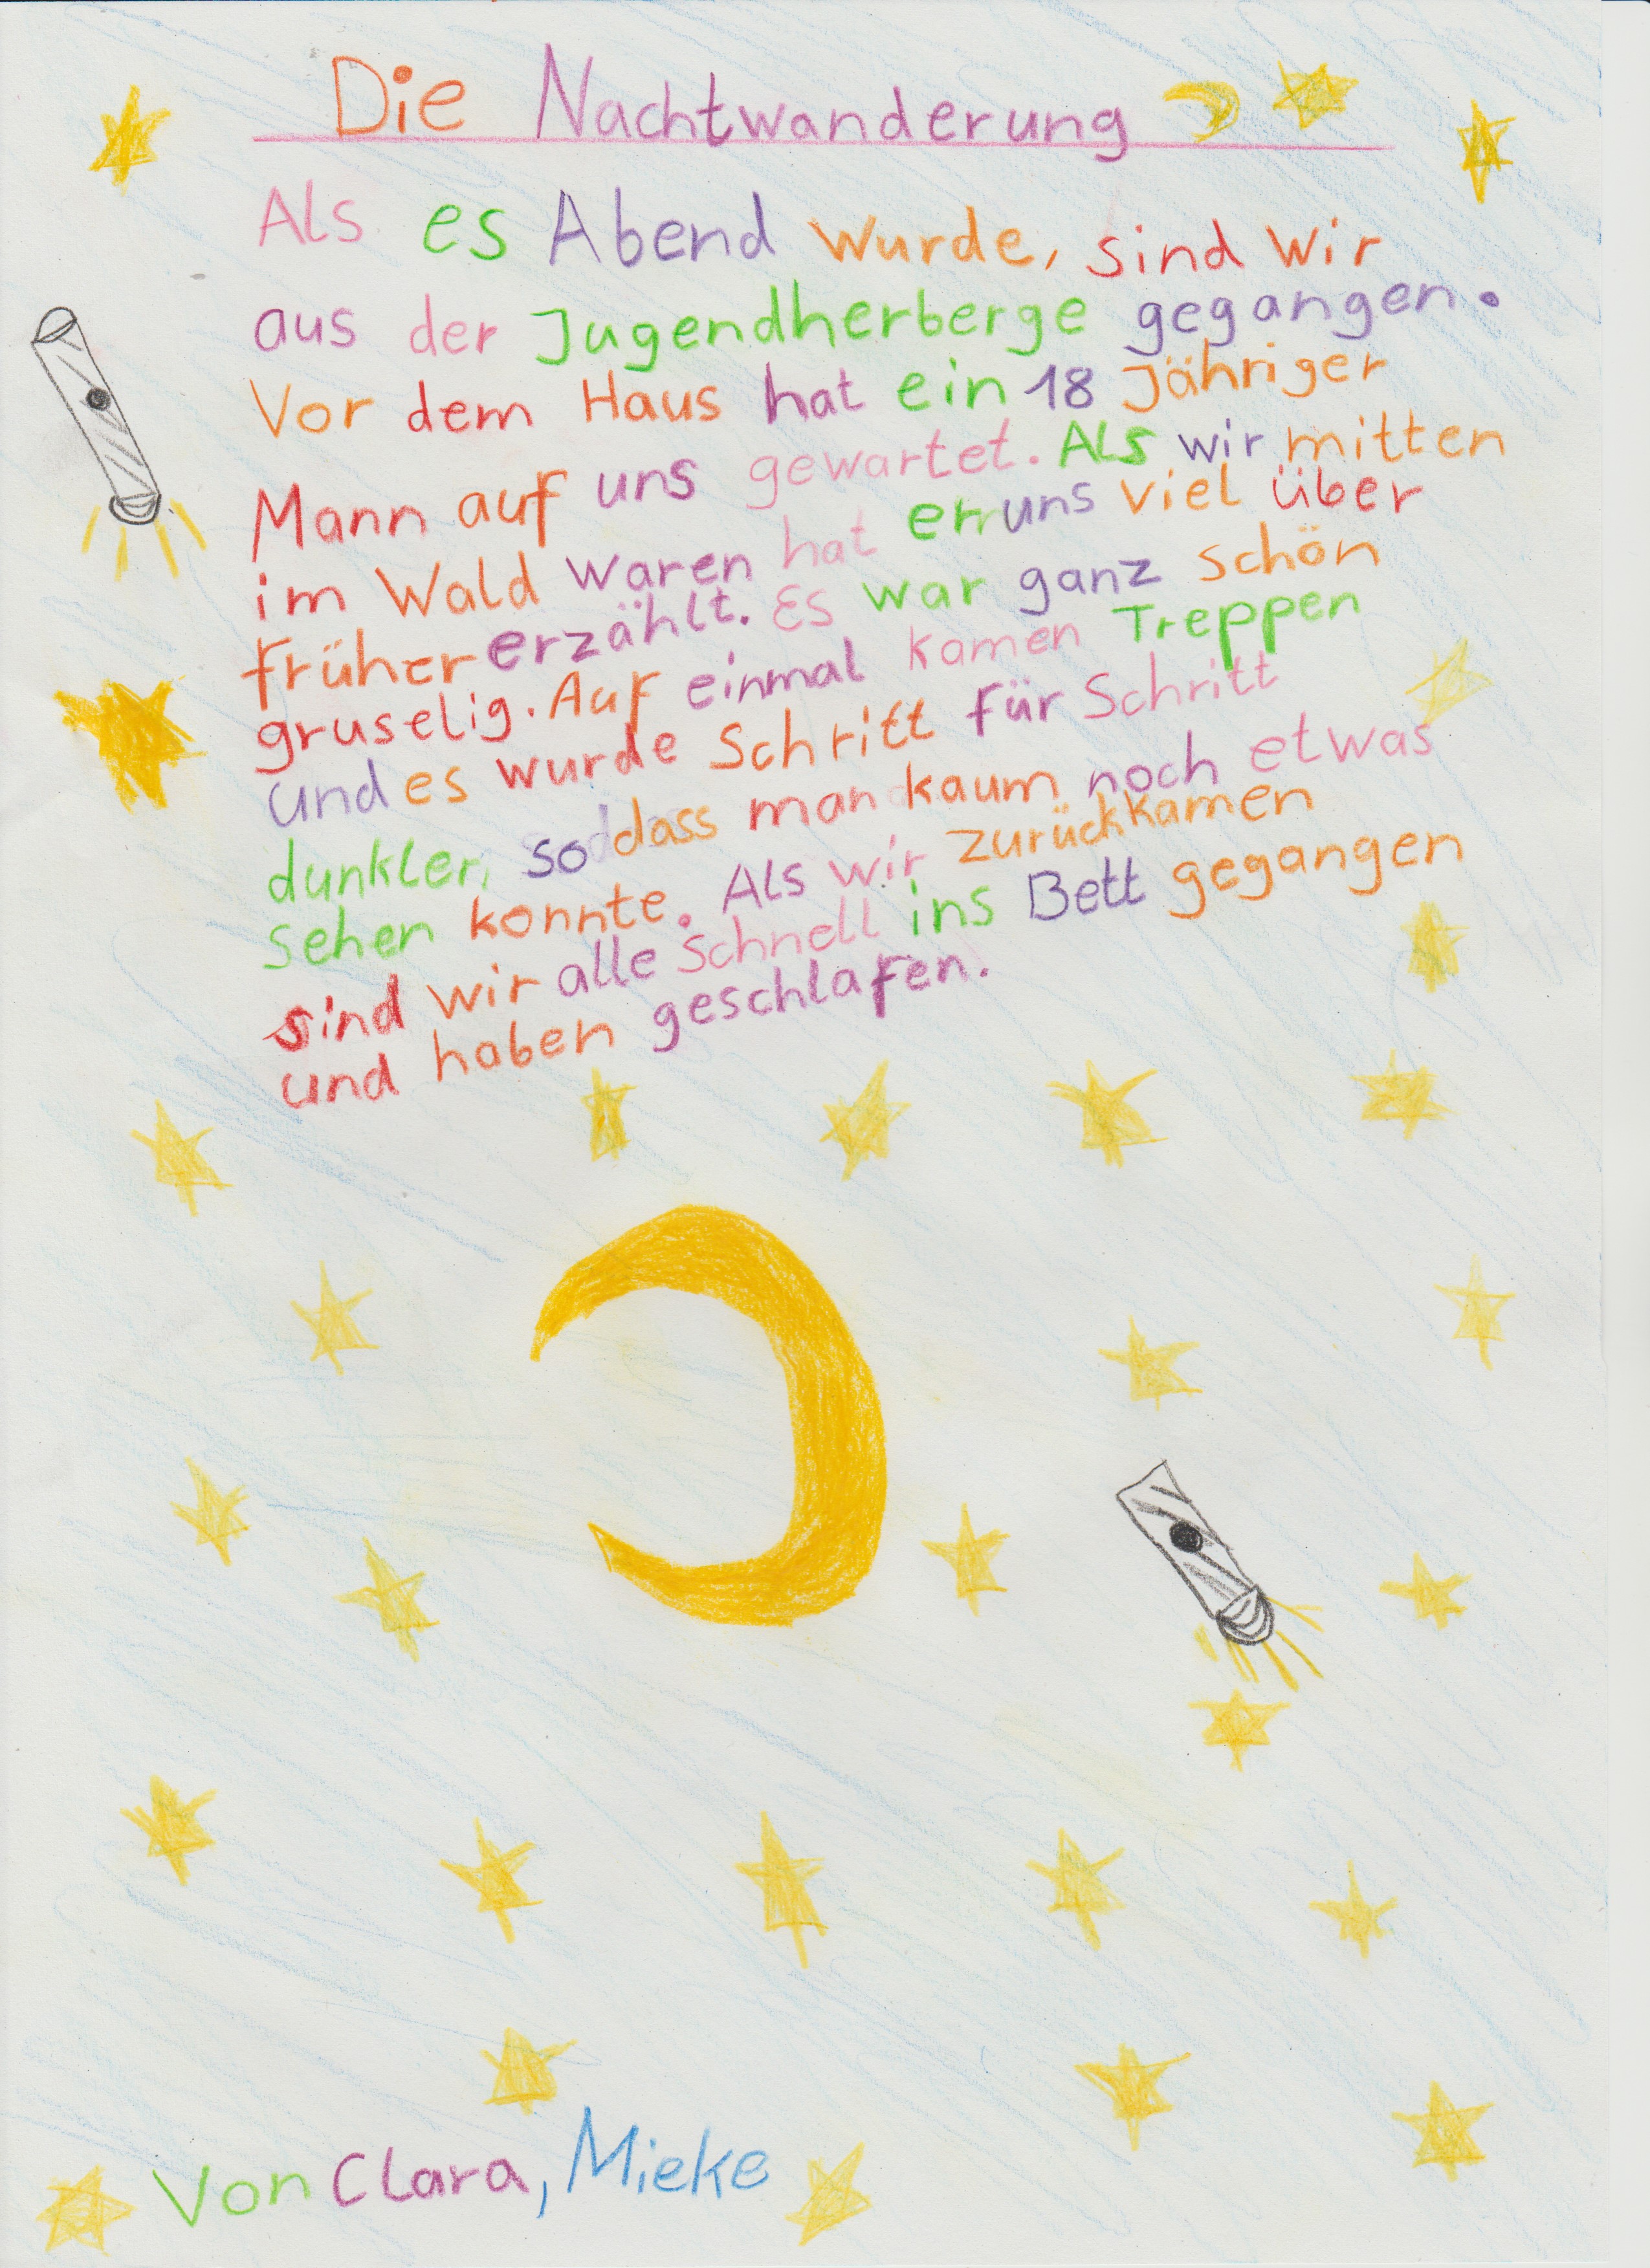 Die Nachtwanderung
Als es Abend wurde, sind wir
aus der Jugendherberge gegangen.
Vor dem Haus hat ein 18 Jähriger
Mann auf uns gewartet. Als wir mitten
im Wald waren hat er uns viel über
früher erzählt. Es war ganz schön
gruselig. Auf einmal kamen Treppen
und es wurde Schritt für Schritt
dunkler, so dass man kaum noch etwas
sehen konnte. Als wir zurückkamen
sind wir alle schnell ins Bett gegangen
und haben geschlafen.
Von Clara, Mieke